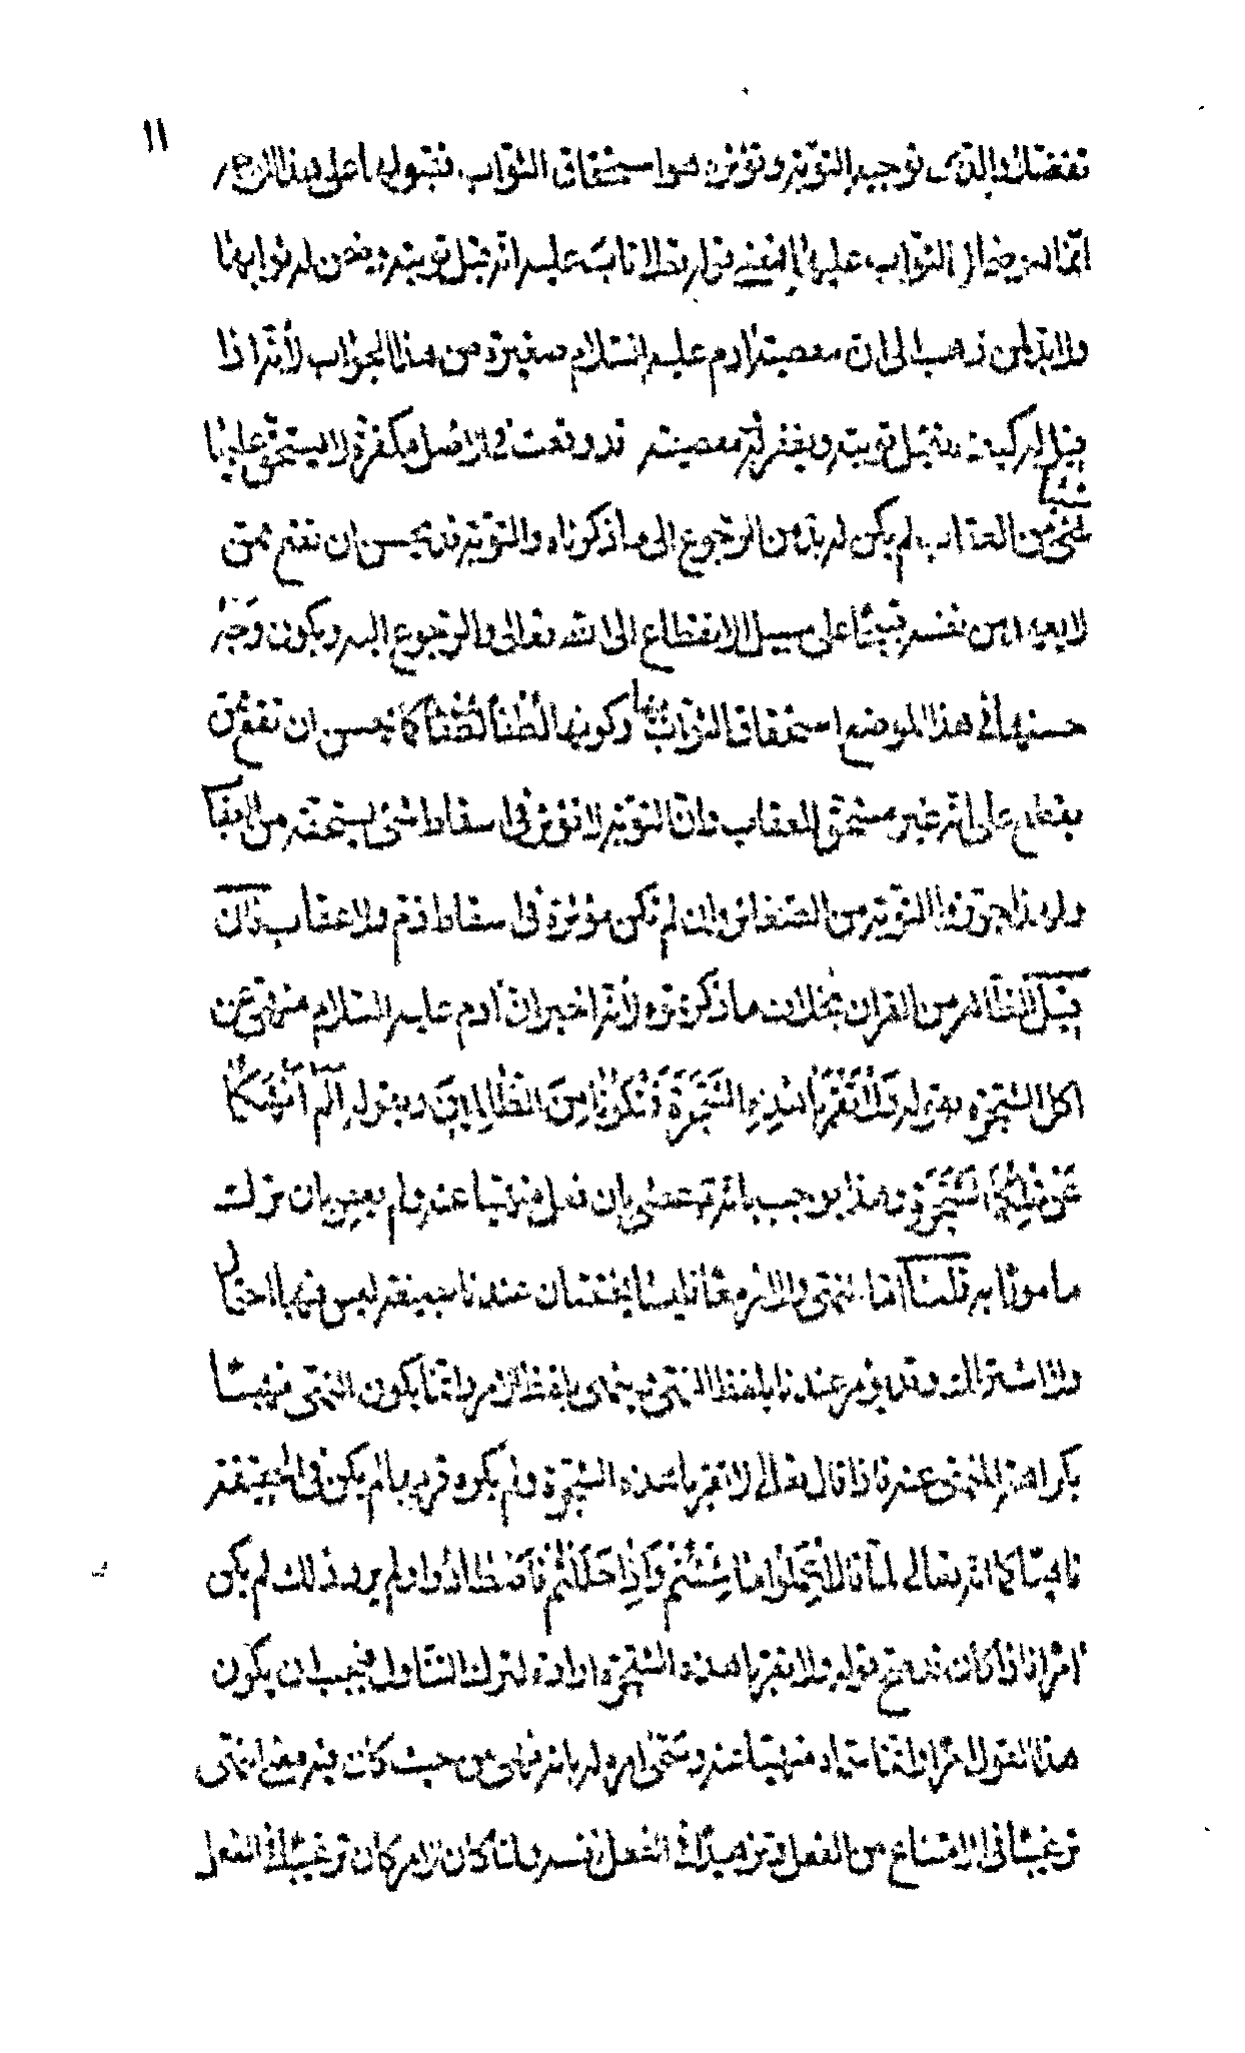 ١١
تفضلا والذي توجبه التوبة وتؤثره هو استحقاق الثواب فقبولها على هذا الوجه
انما هو ضمان الثواب عليها فمعنى قوله تعالى تاب عليه انه قبل توبته وضمن له ثوابها
ولا بد لمن ذهب الى ان معصية ادم عليه السلام صغيرة من هذا الجواب لأنه اذا
قيل له كيف تقبل توبته ويغفر له معصيته قد وقعت في الاصل مكفرة لا يستحق عليها
شيئا
من العقاب لم يكن له بد من الرجوع الى ما ذكرناه والتوبة قد يحسن ان تقع ممن
لا يعهد من نفسه قبيحا على سبيل الانقطاع الى الله تعالى والرجوع اليه ويكون وجه
حسنها في هذا الموضع استحقاق الثواب بها وكونها لطفا كما يحسن ان تقع ممن
يقطع على انه غير مستحق للعقاب وان التوبة لا تؤثر في اسقاط شيء يستحقه من العقاب
ولهذا جوزوا التوبة من الصغائر وان لم تكن مؤثرة في اسقاط ذم ولا عقاب فان
قيل الظاهر من القران بخلاف ما ذكرتموه لأنه اخبر ان ادم عليه السلام منهي عن
اكل الشجرة بقوله ولا تقربا هذه الشجرة فتكونا من الظالمين وبقوله الم انهكما
عن تلكما الشجرة وهذا يوجب بانه عصى بان فعل منهيا عنه ولم يعص بان ترك
مامورا به قلنا اما النهي والامر معا فليسا يختصان عندنا بصيغة ليس فيها احتمال
ولا اشتراك وقد يؤمر عندنا بلفظ النهي وينهى بلفظ الامر وانما يكون النهي نهيا
بكراهة المنهي عنه فاذا قال تعالى لا تقربا هذه الشجرة ولم يكره قربها لم يكن في الحقيقة
ناهيا كما انه تعالى لما قال اعملوا ما شئتم واذا حللتم فاصطادوا ولم يرد ذلك لم يكن
امرا فاذا كان قد صح قوله ولا تقربا هذه الشجرة ارادة لترك التناول فيجب ان يكون
هذا القول امرا وانما سماه منهيا عنه وسمى امره له بانه نهي من حيث كان فيه معنى النهي
ترغيبا في الامتناع من الفعل وتزهيدا في الفعل نفسه ولما كان الامر كان ترغيبا في الفعل